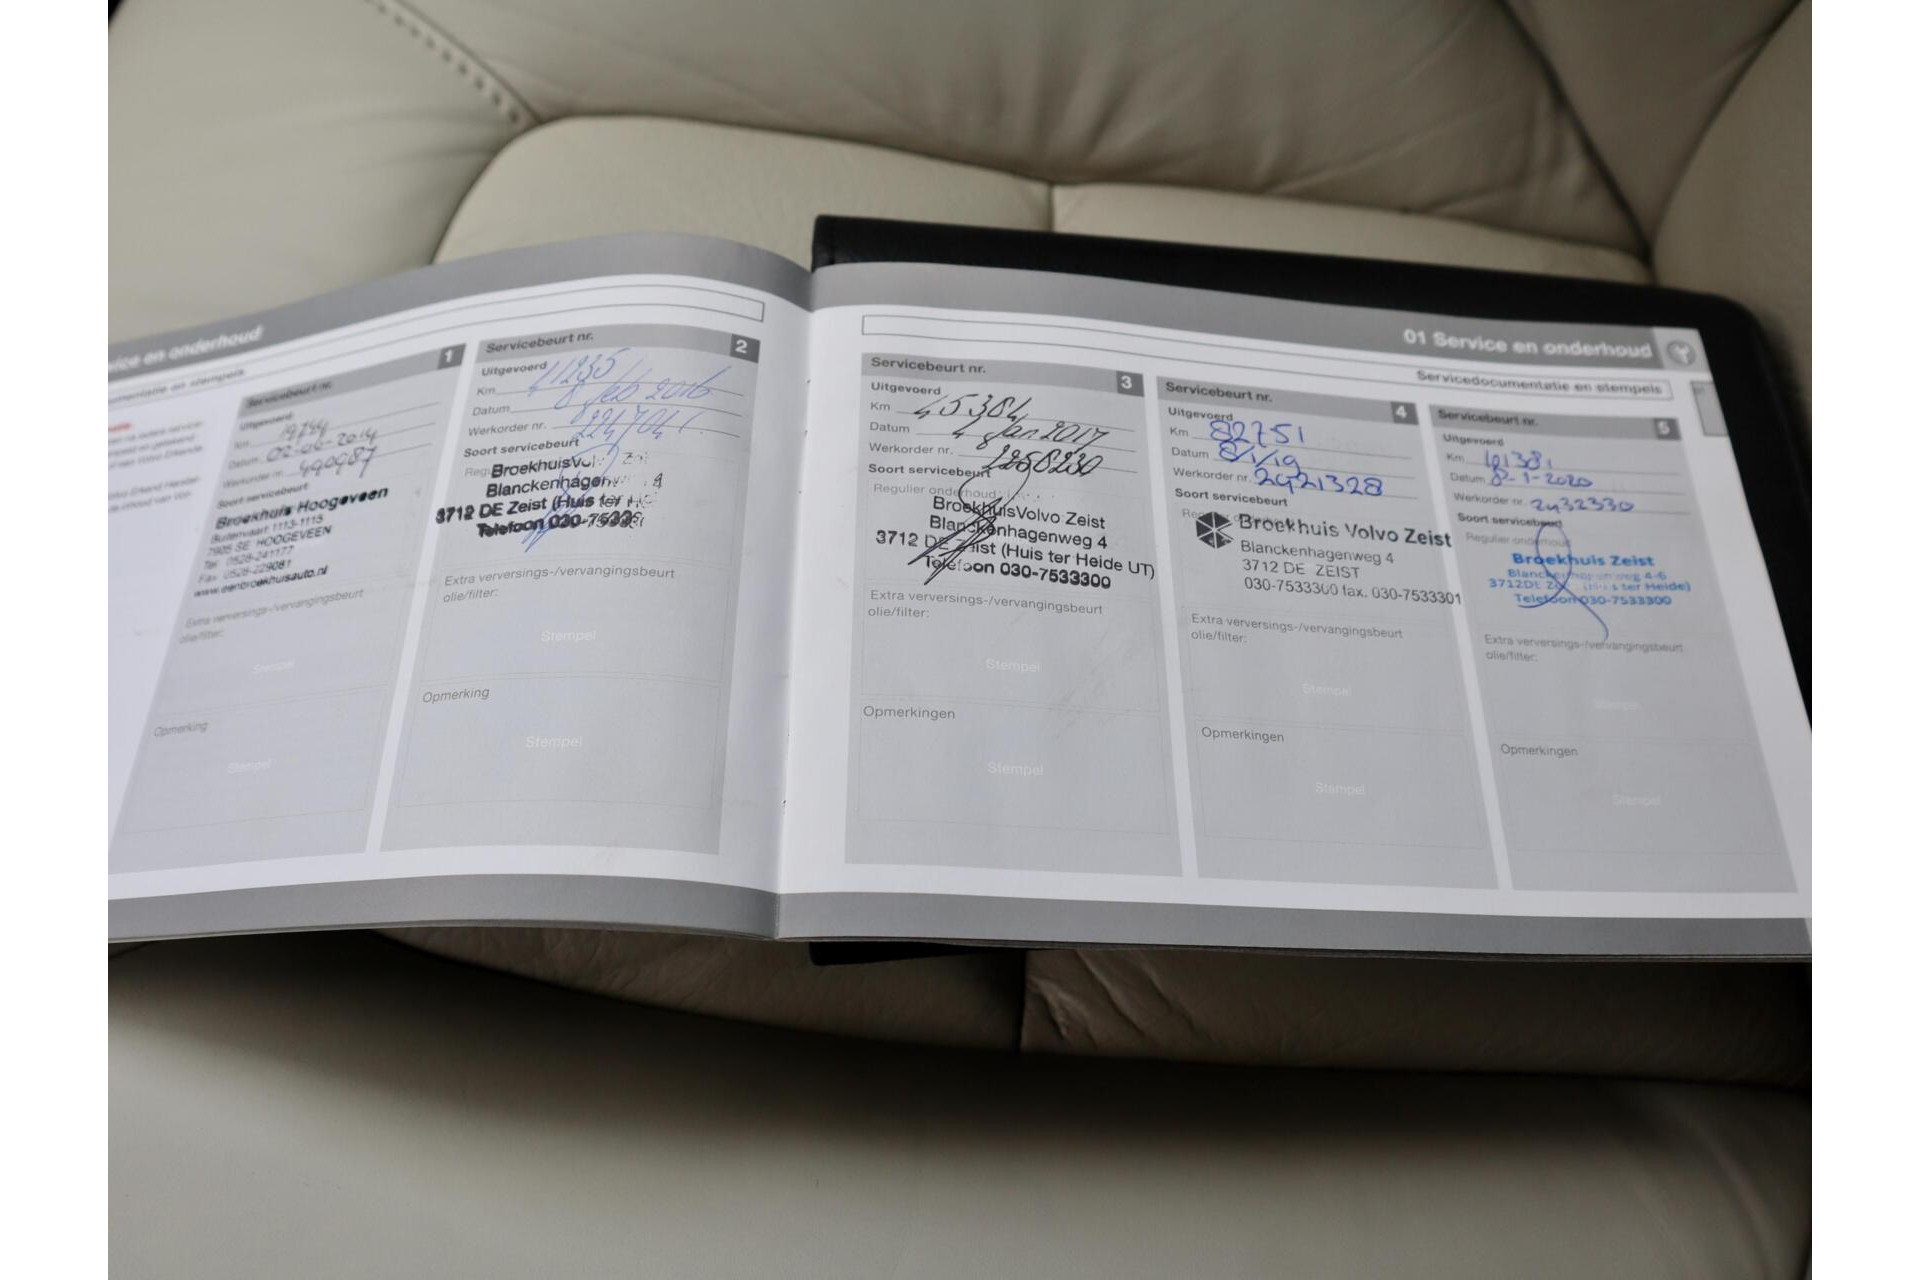 ice en onderhoud
mentatie en stempels
Servicebeurt nr. 1
Uitgevoerd
Km 19744
Datum 02-06-2014
Werkorder nr. 490987
Soort servicebeurt
Broekhuis Hoogeveen
Buitenvaart 1113-1115
7905 SE HOOGEVEEN
Tel. 0528-241177
Fax. 0528-229081
www.eenbroekhuisauto.nl
Extra verversings-/vervangingsbeurt
olie/filter:
Stempel
Opmerking
Stempel
Servicebeurt nr. 2
Uitgevoerd
Km 41235
Datum 8 feb 2016
Werkorder nr.
Soort servicebeurt
BroekhuisVol Zei
Blanckenhagen 4
3712 DE Zeist (Huis ter H
Telefoon 030-7533
Extra verversings-/vervangingsbeurt
olie/filter:
Stempel
Opmerking
Stempel
01 Service en onderhoud
Servicedocumentatie en stempels
Servicebeurt nr. 3
Uitgevoerd
Km 45384
Datum 4 Jan 2017
Werkorder nr. 2258230
Soort servicebeurt
Regulier onderhoud
BroekhuisVolvo Zeist
Blanckenhagenweg 4
3712 DE Zeist (Huis ter Heide UT)
Telefoon 030-7533300
Extra verversings-/vervangingsbeurt
olie/filter:
Stempel
Opmerkingen
Stempel
Servicebeurt nr. 4
Uitgevoerd
Km 82751
Datum 8/1/19
Werkorder nr. 2421328
Soort servicebeurt
Broekhuis Volvo Zeist
Blanckenhagenweg 4
3712 DE ZEIST
030-7533300 fax. 030-7533301
Extra verversings-/vervangingsbeurt
olie/filter:
Stempel
Opmerkingen
Stempel
Servicebeurt nr. 5
Uitgevoerd
Km 101381
Datum 02-1-2020
Werkorder nr 2432330
Soort servicebeurt
Regulier onderhoud
Broekhuis Zeist
Blanckenhagenweg 4-6
3712DE Zeist (Huis ter Heide)
Telefoon 030-7533300
Extra verversings-/vervangingsbeurt
olie/filter:
Stempel
Opmerkingen
Stempel